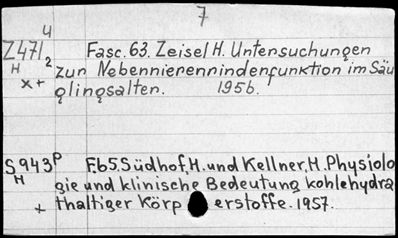 7
4
Z471₂ Fasc. 63. Zeisel H. Untersuchungen
H zur Nebennierenrindenfunktion im Säu
x + glingsalten. 1956.
S943P F.65. Südhof, H. und Kellner, H. Physiolo
H gie und klinische Bedeutung kohlehydra
+ thaltiger Körp erstoffe. 1957.